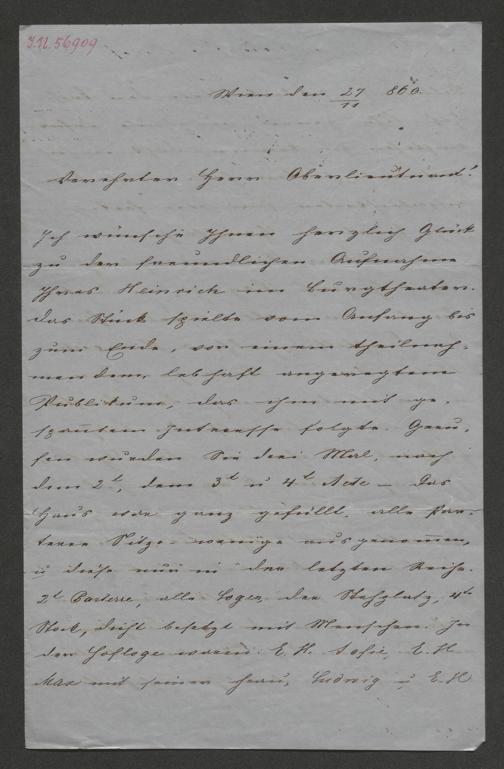 I.N. 56909
Wien den 27/11 860.
Verehrter Herr Oberlieutnant!
Ich wünsche Ihnen herzlich Glück
zu der freundlichen Aufnahme
Ihres Heinrich im Burgtheater.
Das Stück spielte vom Anfang bis
zum Ende, vor einem theilneh-
mendem, lebhaft angeregtem
Publikum, das ihm mit ge-
span̄tem Interesse folgte. Geru-
fen wurden Sie drei Mal, nach
dem 2t, dem 3t u 4t Acte – Das
Haus war ganz gefüllt, alle Par-
terre Sitze wenige ausgenom̄en,
u diese nur in der letzten Reihe.
2t Parterre, alle Logen, der Stehplatz, 4te
Stock, dicht besetzt mit Menschen. In
der Hofloge waren E. H. Sofie, E. H
Max mit seiner Frau, Ludwig u E. H